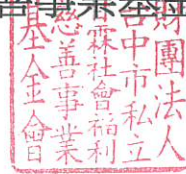 財團法人
台中市私立
甘霖社會福利
慈善事業
基金會